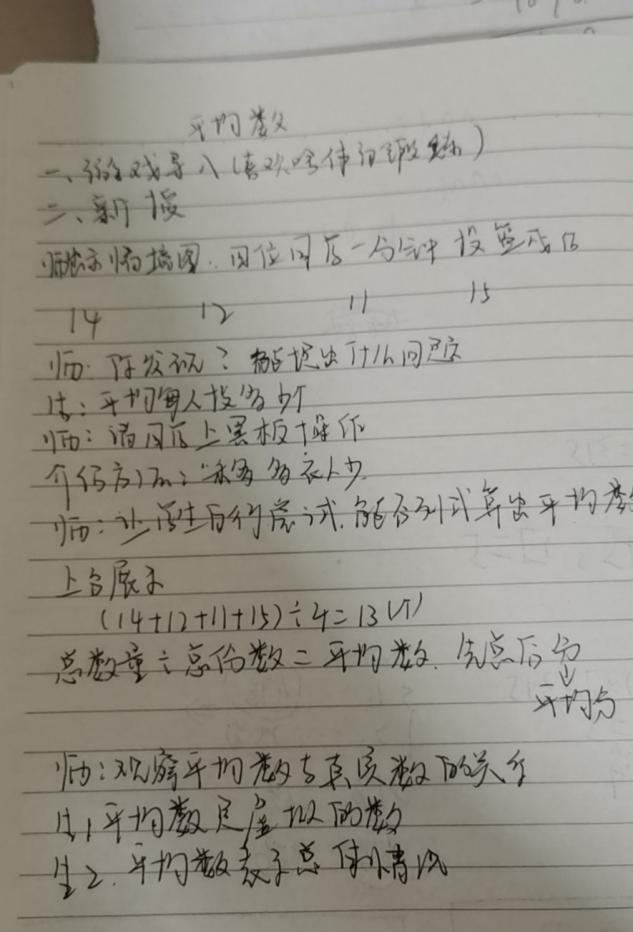 平均数
一、游戏导入(喜欢啥体育锻炼)
二、新授
师:展示情境图.四位同学一分钟投篮成绩
14 12 11 15
师:你发现?能提出什么问题
生:平均每人投多少个
师:请同学上黑板操作
介绍方法:移多补少
师:让学生自行尝试.能否列式算出平均数
上台展示
(14+12+11+15)÷4=13(个)
总数量÷总份数=平均数.先总后分
平均分
师:观察平均数与真实数的关系
生1平均数是虚拟的数
生2.平均数表示总体情况